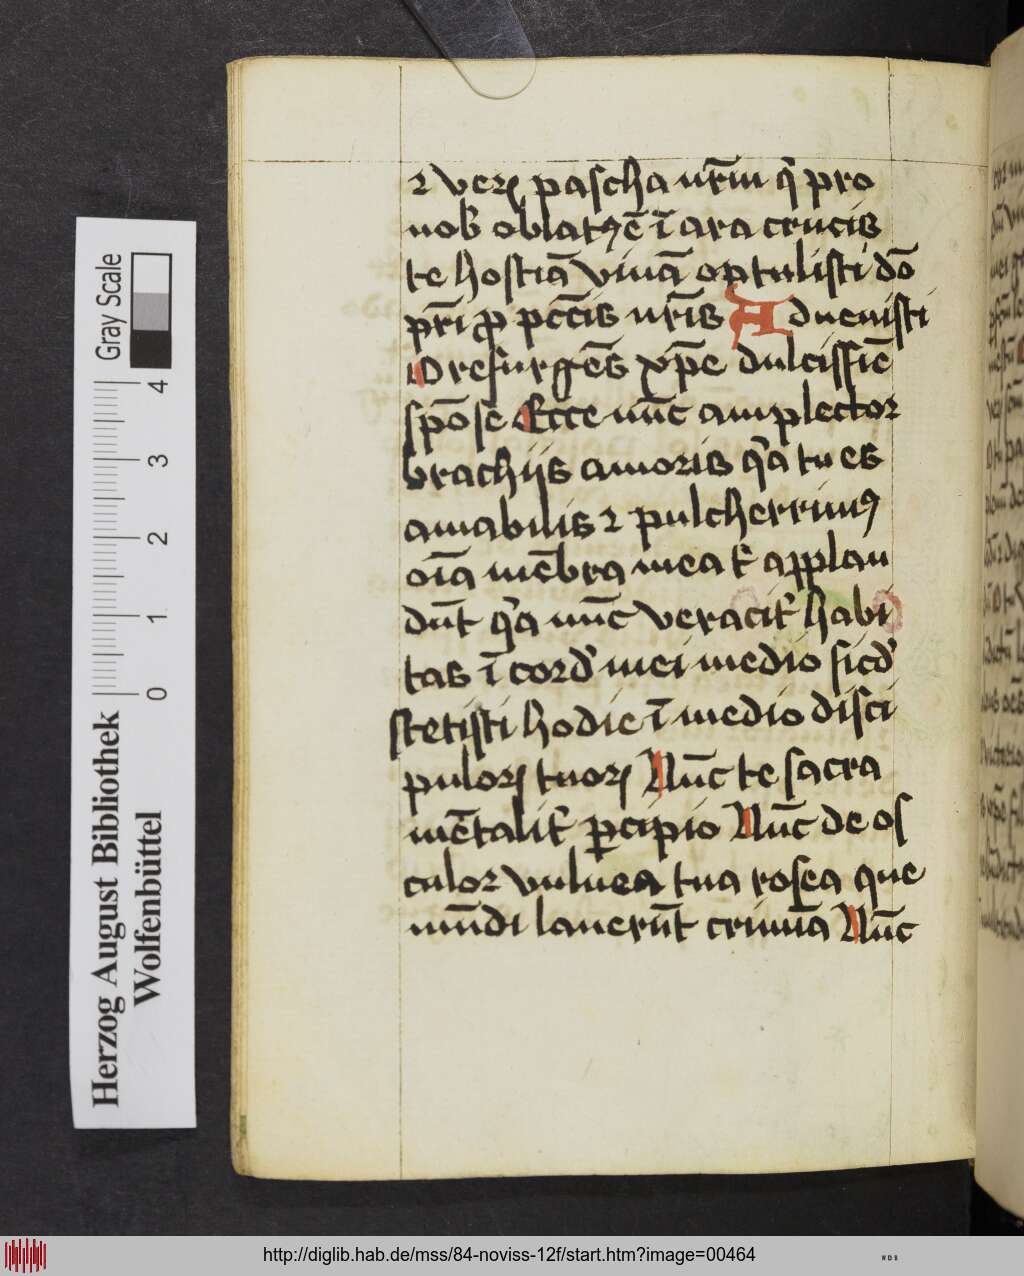 ⁊ verꝝ pascha nr̄m q̇ pro
nob̾ oblatꝰ ē ī ara crucis
te hostiā viuā optulisti dō
pr̄i ꝓ pctīs nr̄is Aduenisti
O resurgēs xp̄e dulcissīē
spōse Ecce nūc amplector
brachijs amoris qͣa tu es
amabilis ⁊ pulcherrimꝰ
oīa mēbra mea t̾ applau
dūt qͣa nūc veracit̾ habi
tas ī cord̾ mei medio sicd̾
stetisti hodie ī medio disci
pulorꝝ tuorꝝ Nūc te sacra
mētalit̾ ꝑcipio Nūc de os
culor vulnera tua rosea que
mūdi lauerūt crimīa Nūc
Gray Scale
4
3
2
1
0
Herzog August Bibliothek
Wolfenbüttel
http://diglib.hab.de/mss/84-noviss-12f/start.htm?image=00464